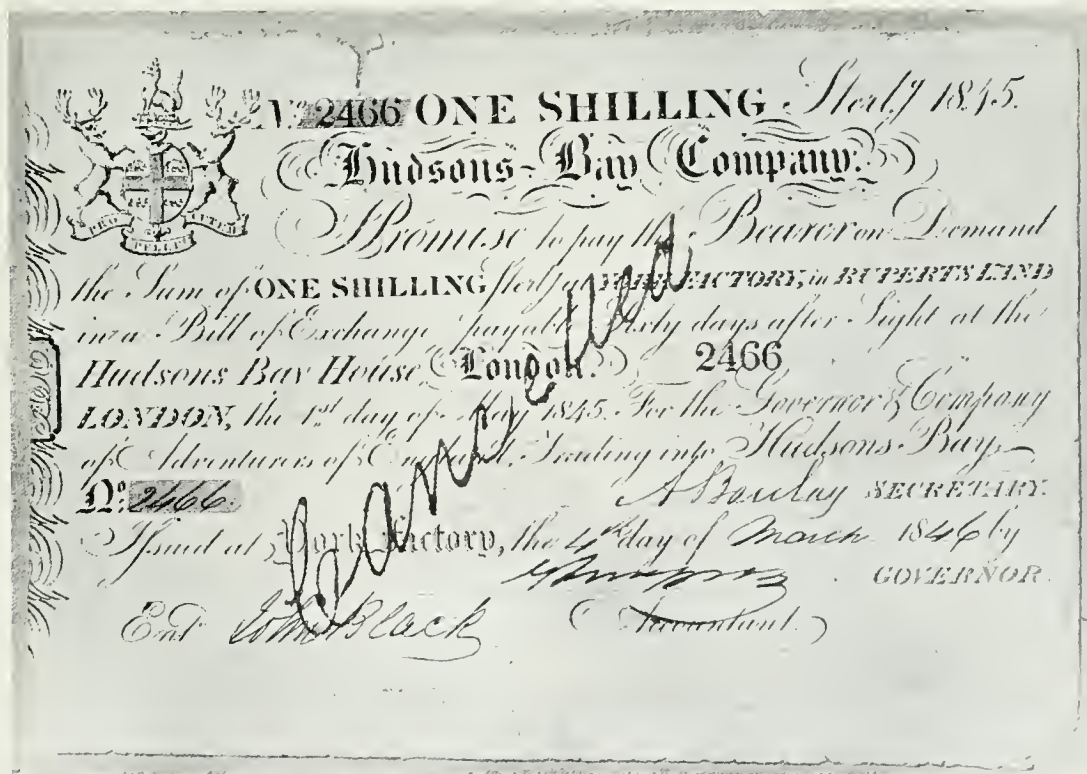 No. 2466 ONE SHILLING Sterlg 1845.
Hudsons-Bay Company.
PRO PELLE CUTEM
I Promise to pay the Bearer on Demand
the Sum of ONE SHILLING Sterlg at YORK FACTORY, in RUPERTS LAND
in a Bill of Exchange payable Sixty days after Sight at the
Hudsons Bay House London. 2466
LONDON, the 1st day of May 1845. For the Governor & Company
of Adventurers of England, Trading into Hudsons-Bay
No. 2466 A Barclay SECRETARY.
Issued at York Factory, the 4th day of March 1846 by
GOVERNOR.
Entd. John Black Accountant.
Cancelled